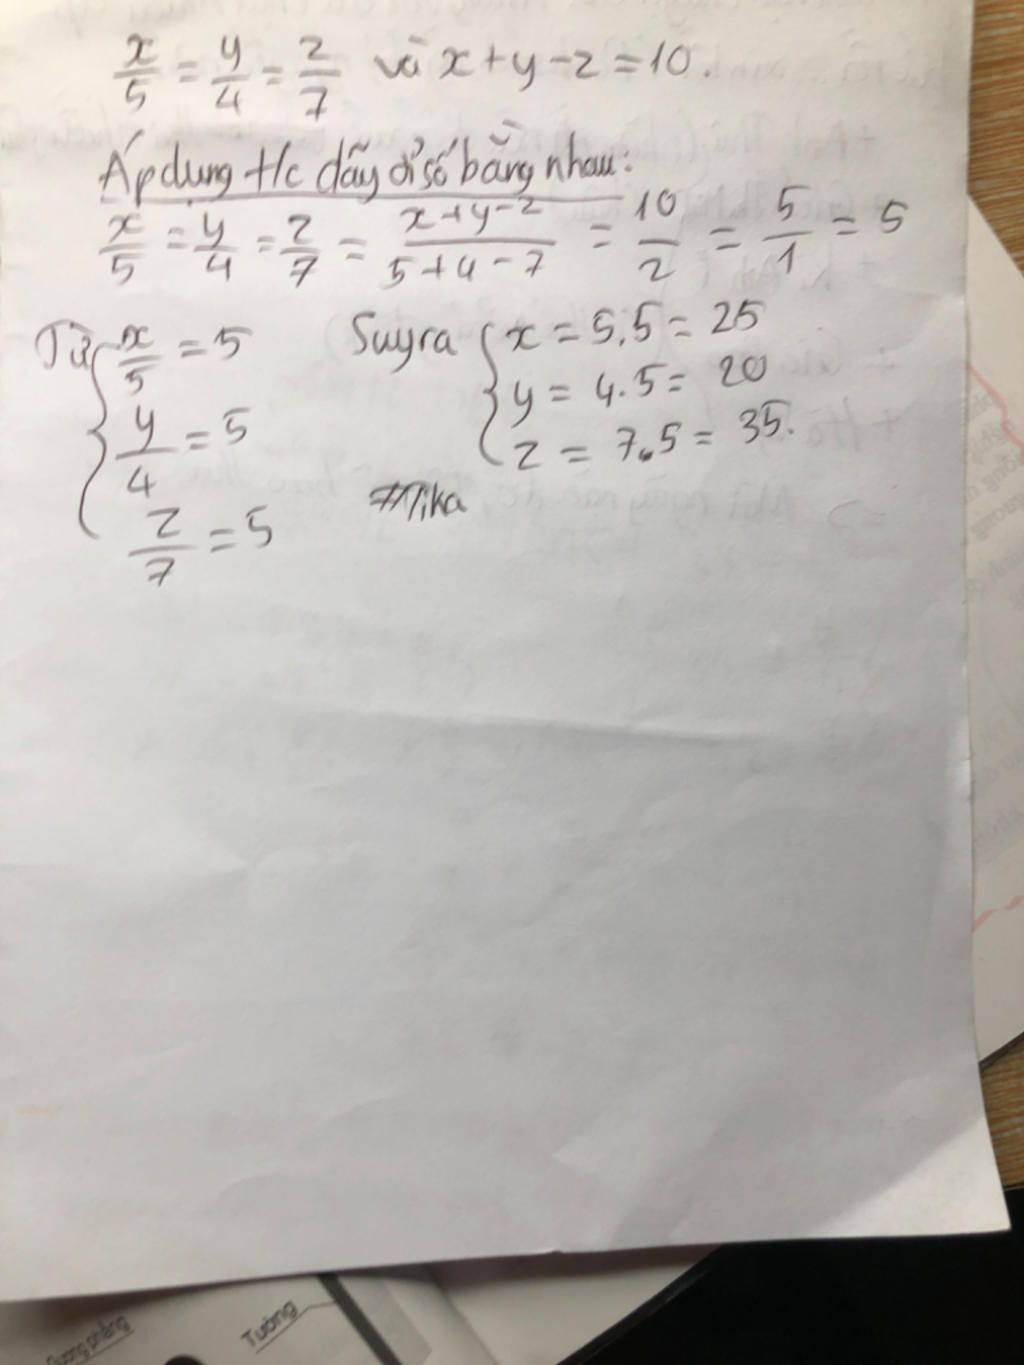 x/5 = y/4 = z/7 và x + y - z = 10.
Áp dụng t/c dãy tỉ số bằng nhau:
x/5 = y/4 = z/7 = (x + y - z)/(5 + 4 - 7) = 10/2 = 5/1 = 5
Từ { x/5 = 5
y/4 = 5
z/7 = 5
Suy ra { x = 5.5 = 25
y = 4.5 = 20
z = 7.5 = 35.
#Tika
Tường